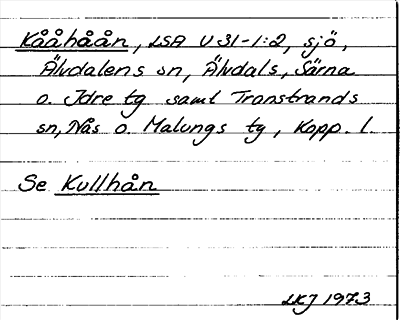 Kååhåån, LSA U 31-1:2, sjö,
Älvdalens sn, Älvdals, Särna
o. Idre tg samt Transtrands
sn, Nås o. Malungs tg, Kopp. l.
Se Kullhån
LKJ 1973